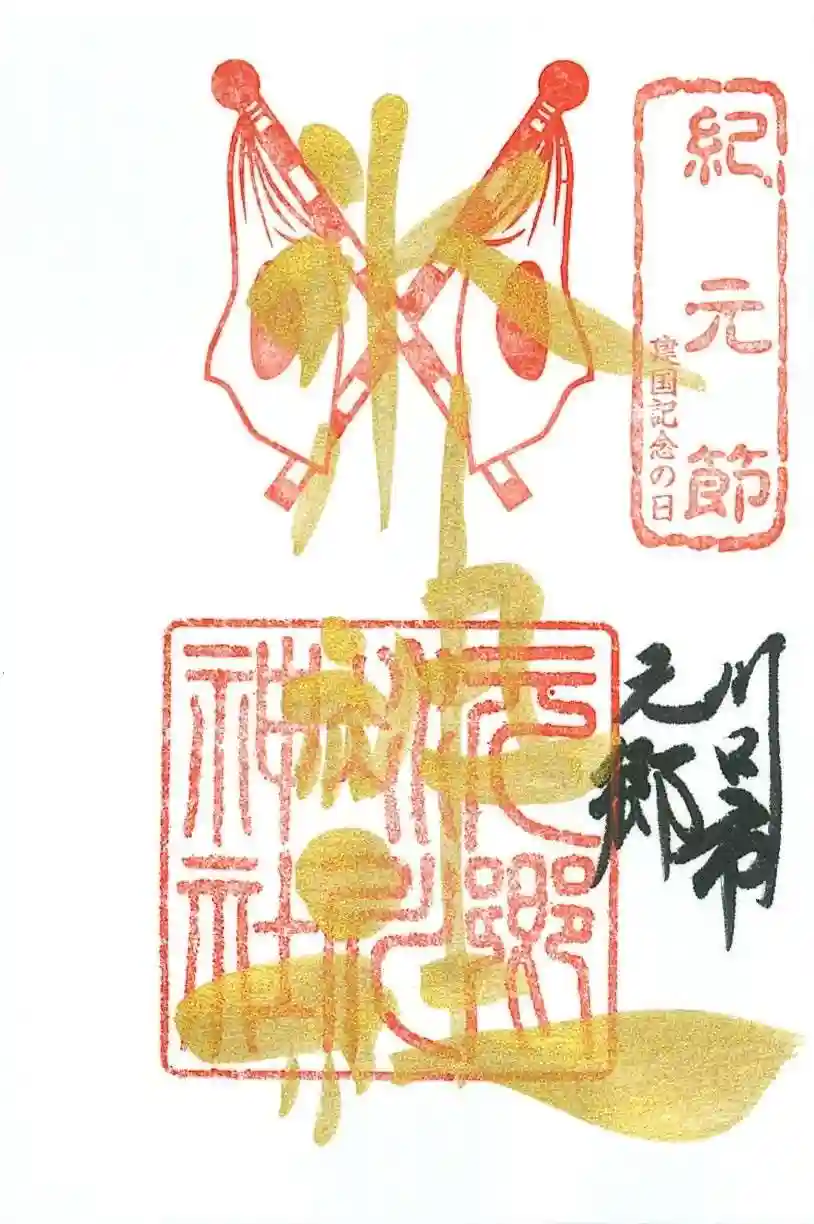 紀元節
建国記念の日
川口市
元郷
元郷
氷川
神社